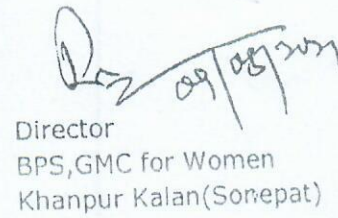 Director
BPS,GMC for Women
Khanpur Kalan(Sonepat)